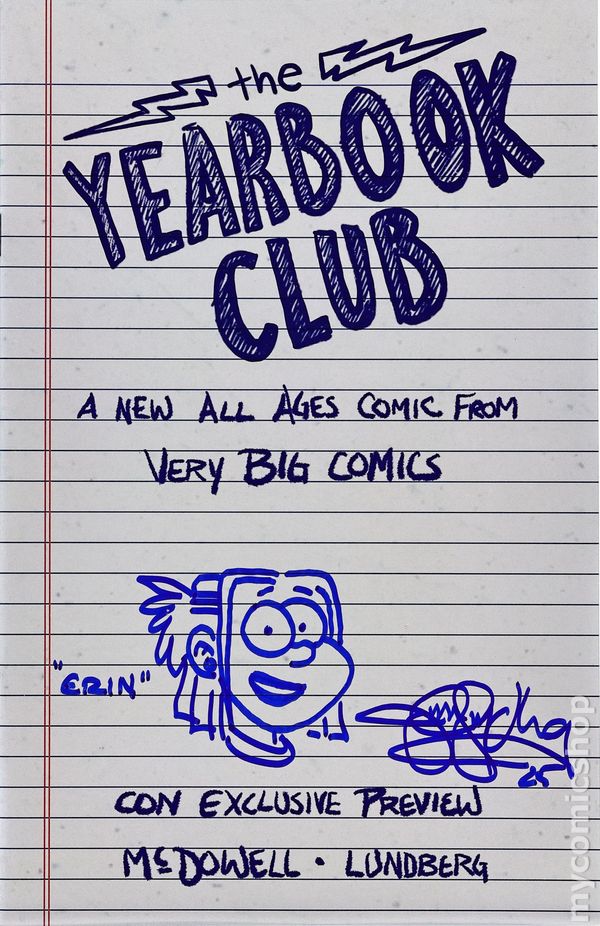 the
YEARBOOK
CLUB
A NEW ALL AGES COMIC FROM
VERY BIG COMICS
"ERIN"
25
CON EXCLUSIVE PREVIEW
McDOWELL • LUNDBERG
mycomicshop